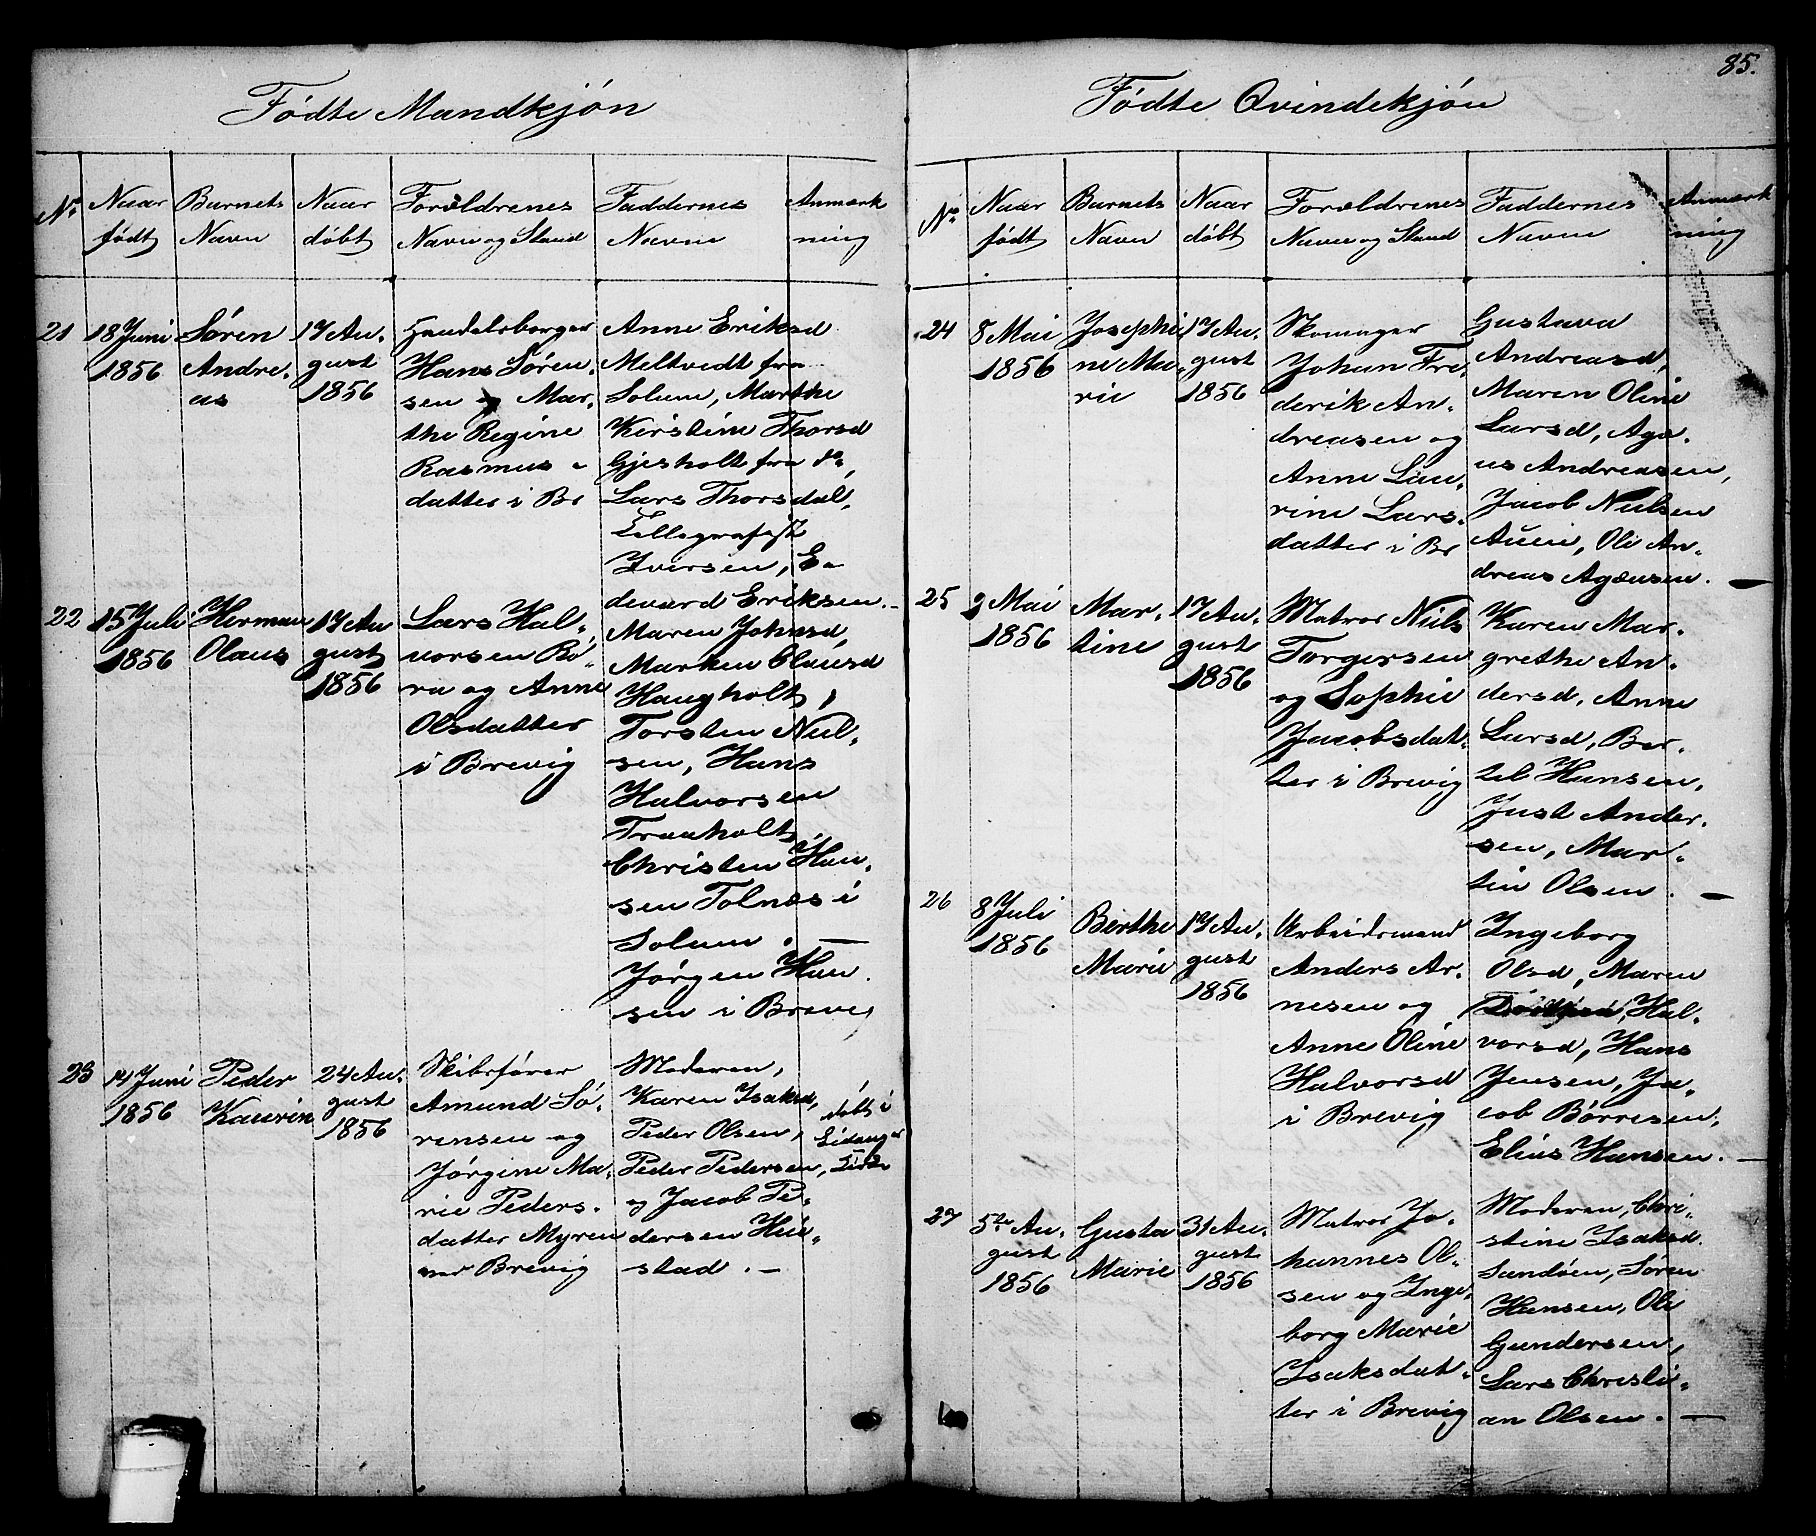 Fødte Mandkjøn
No
Naar
født
Barnets
Navn
Naar
døbt
Forældrenes
Navn og Stand
Faddernes
Navne
Anmærk
ning
21
18 Juni
1856
Søren
Andre-
as
17 Au-
gust
1856
Handelsborger
Hans Søren-
sen og Mar-
the Regine
Rasmus-
datter i Br
Anne Eriksd
Meltvedt fra
Solum, Marthe
Kirstine Thorsd
Gjesholt fra do,
Lars Thorsdal,
Tellegrafist
Iversen, E-
devard Eriksen.-
22
15 Juli
1856
Herman
Olaus
17 Au
gust
1856
Lars Hal-
vorsen Bø-
ra og Anne
Olsdatter
i Brevig
Maren Johnsd,
Marken Clausd
Haugholt,
Torsten Niel-
sen, Hans
Halvorsen
Traaholt
Christen Han-
sen Tolnæs i
Solum. —
Jørgen Han-
sen i Brevig
23
14 Juni
1856
Peder
Kaurin
24 Au-
gust
1856
Skibsfører
Amund Sø-
rensen og
Jørgine Ma-
rie Peders-
datter Myren
ved Brevig
Moderen,
Karen Isaksd,
Peder Olsen,
Peder Pedersen,
og Jacob Pe-
dersen Hei-
stad. —
døbt i
Eidanger
Kirke
85.
Fødte Qvindekjøn
No
Naar
født
Barnets
Navn
Naar
døbt
Forældrenes
Navn og Stand
Faddernes
Navne
Anmærk
ning
24
8 Mai
1856
Josephi
ne Ma-
rie
17 Au-
gust
1856
Skomager
Johan Fre-
derik An-
dreasen og
Anne Lau-
rine Lars-
datter i Br
Gustava
Andreasd,
Maren Oline
Larsd, Aga-
us Andreasen,
Jacob Nielsen
Auen, Ole An-
dreas Agæusen. —
25
2 Mai
1856
Mar-
tine
17 Au-
gust
1856
Matros Niels
Torgersen
og Sophie
Jacobsdat-
ter i Brevig
Karen Mar-
grethe An-
dersd, Anne
Larsd, Ber-
tel Hansen,
Just Ander-
sen, Mar-
tin Olsen. —
26
8 Juli
1856
Berthe
Marie
17 Au-
gust
1856
Arbeidsmand
Anders Ar-
nesen og
Anne Oline
Halvorsd
i Brevig
Ingeborg
Olsd, Maren
Hal-
vorsd, Hans
Jensen, Ja-
cob Børresen,
Elias Hansen. —
27
5te Au-
gust
1856
Gusta
Marie
31 Au-
gust
1856
Matros Jo-
hannes Ol-
sen og Inge-
borg Marie
Isaksdat-
ter i Brevig
Moderen, Chri-
stine Isaksd.
Sandøen, Søren
Hansen, Ole
Gundersen,
Lars Christi-
an Olsen. —